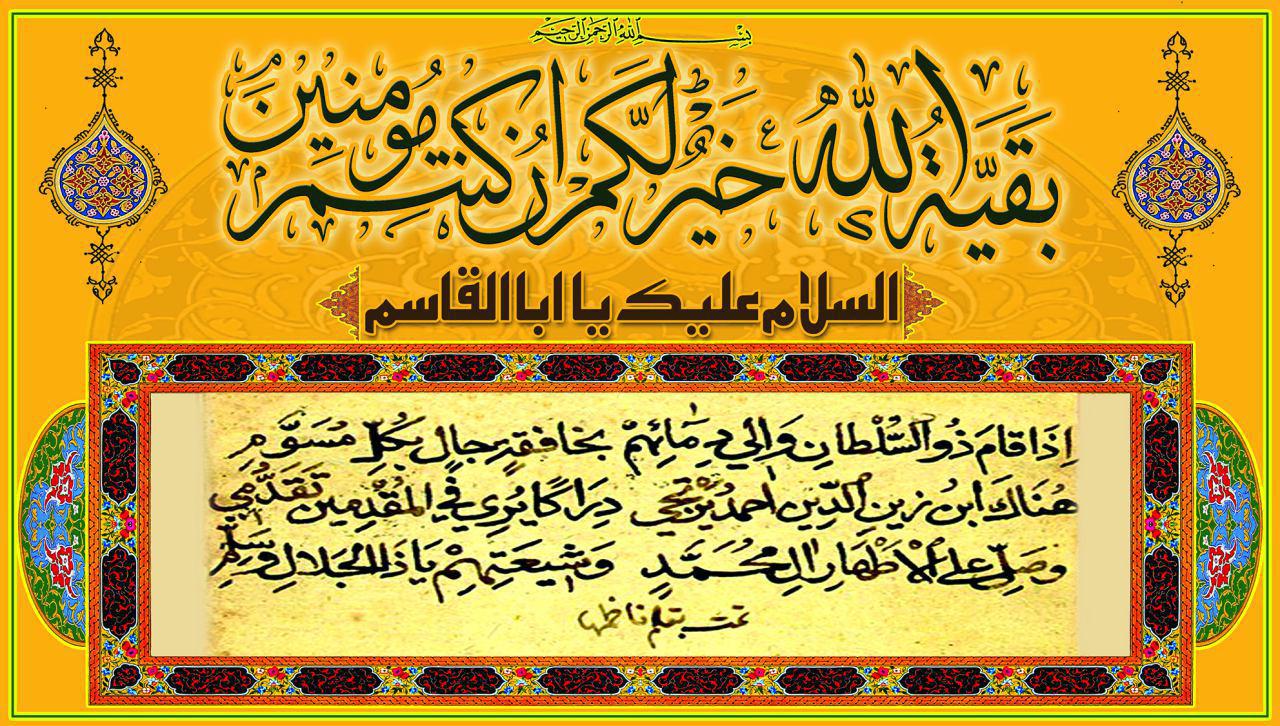 بِسْمِ اللهِ الرَّحْمنِ الرَّحِيمِ
بَقيَّةُ اللّٰهِ خَيرٌ لَّكُم اِن كُنتُم مُومِنِينَ
السلام عليك يا ابا القاسم
اِذَا قامَ ذُو السُّلْطانِ وَالِي دِمَائِهِمْ بخافقةٍ رجالٍ بكُلِّ مُسَوَّمِ
هُنَاكَ ابن زين الدّينِ احمدُ يرتجي دِرَاكًا يُرى في المُقْدِمِين تَقَدُّمِي
وصَلِّ على الاَطْهارِ اٰلِ مُحَمَّدٍ وَشِيعَتِهِمْ يَا ذَا الجَلالِ وَسَلِّمِ
تمت بقلم ناظمها